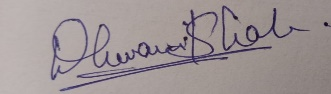 Dhwani Shah.